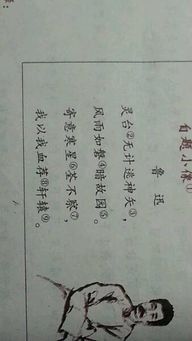 自题小像①
鲁迅
灵台②无计逃神矢③,
风雨如磐④暗故园⑤。
寄意寒星⑥荃不察⑦,
我以我血荐⑧轩辕⑨。